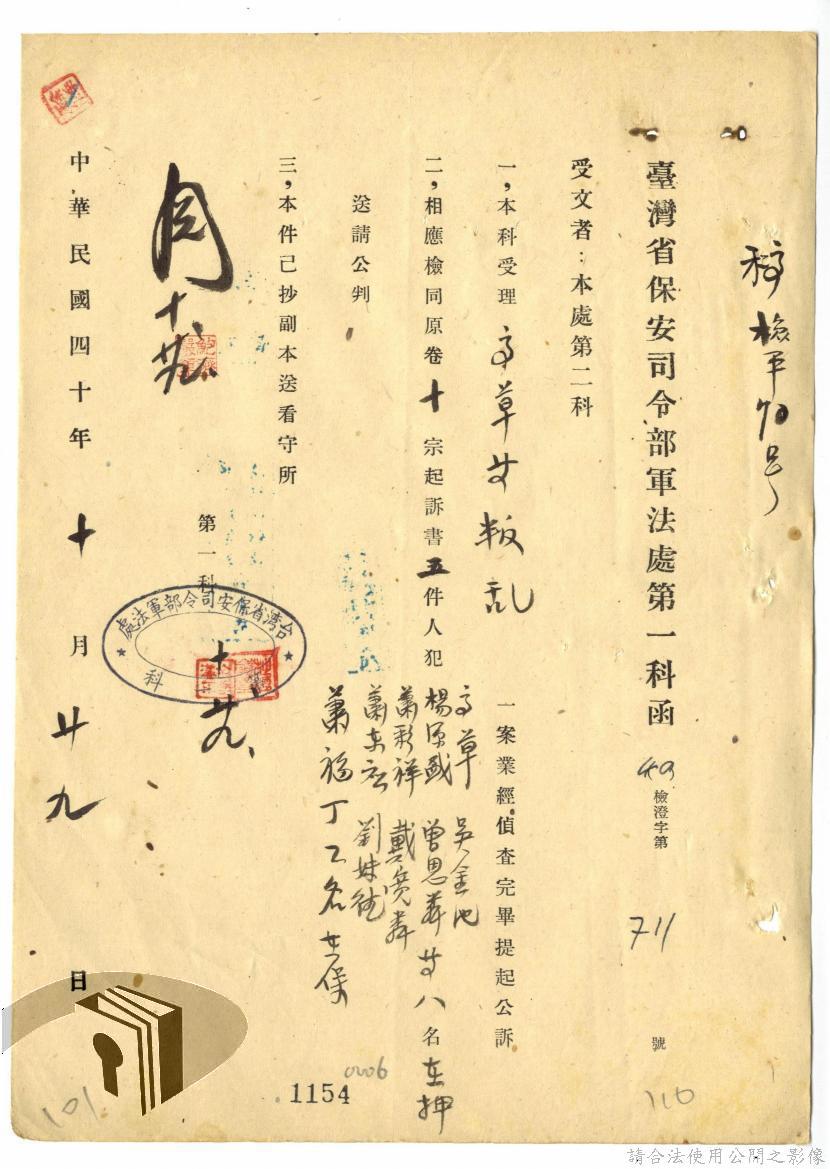 檢平70号
臺灣省保安司令部軍法處第一科函
檢澄字第
711
號
受文者：本處第二科
一，本科受理高草等叛乱一案業經偵查完畢提起公訴
二，相應檢同原卷十宗起訴書五件人犯
高草 吳金池
楊添盛 曾思
蕭彩祥 戴
蕭 劉妹
等八名在押
蕭福丁乙名在保
送請公判
三，本件已抄副本送看守所
第一科
台湾省保安司令部軍法處
科
十
廿九
中華民國四十年十月廿九日
1154
0006
110
101
請合法使用公開之影像